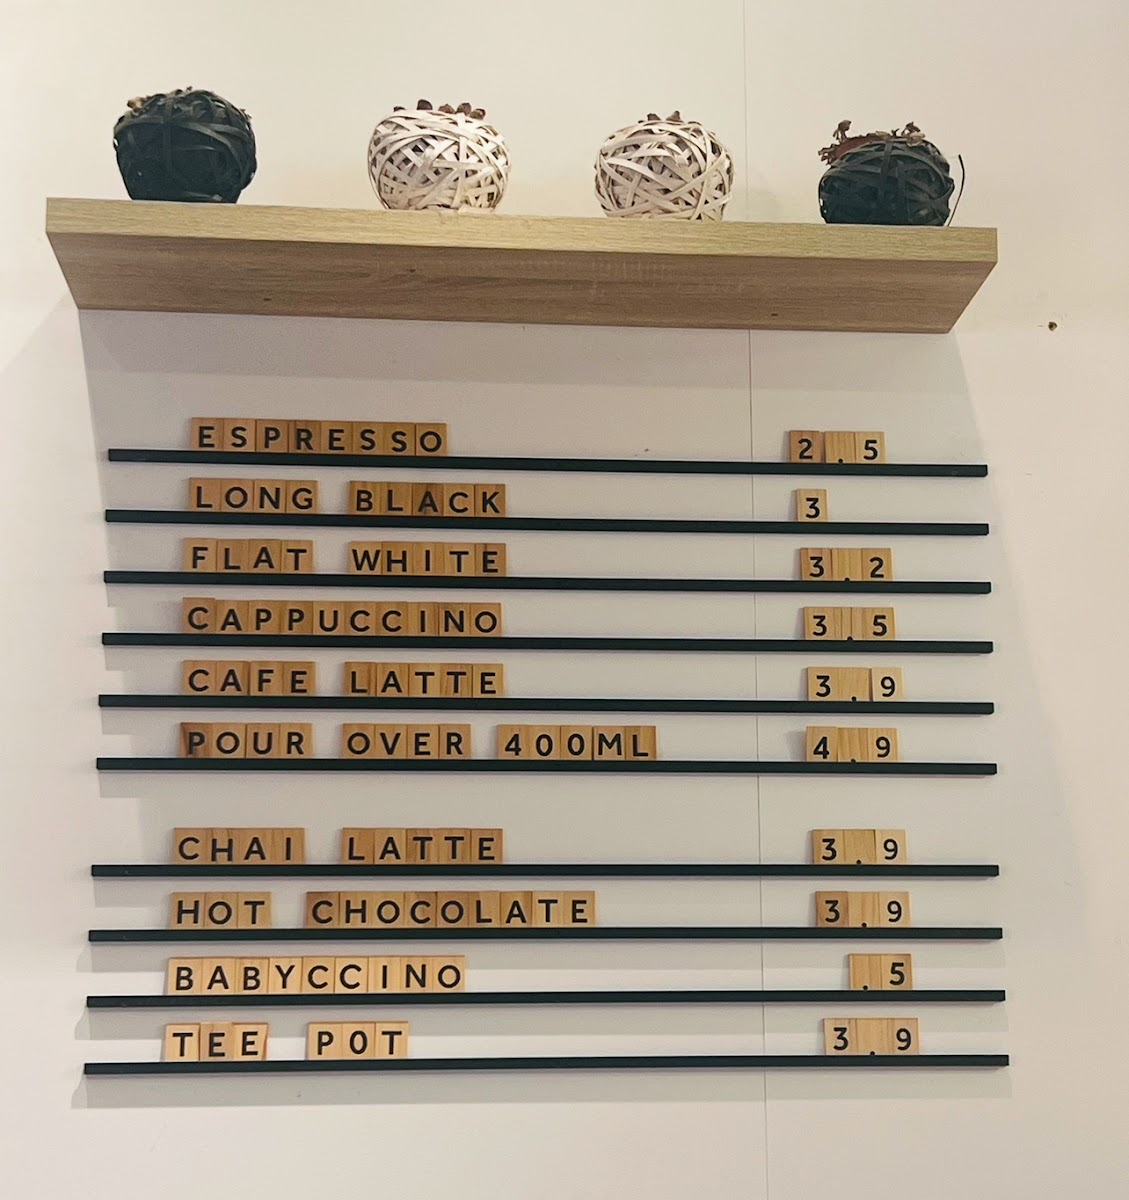 ESPRESSO 2.5
LONG BLACK 3
FLAT WHITE 3.2
CAPPUCCINO 3.5
CAFE LATTE 3.9
POUR OVER 400ML 4.9
CHAI LATTE 3.9
HOT CHOCOLATE 3.9
BABYCCINO .5
TEE POT 3.9